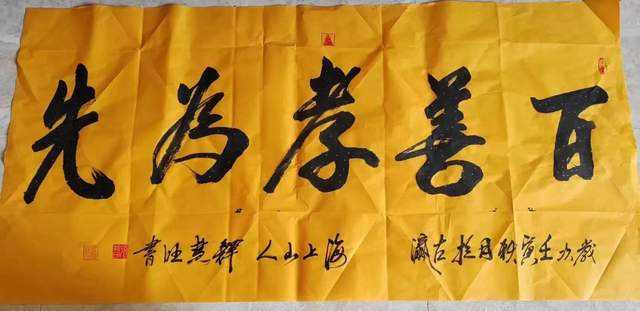 百善孝為先
歲次壬寅秋月於古瀛 海上山人 釋慧法書